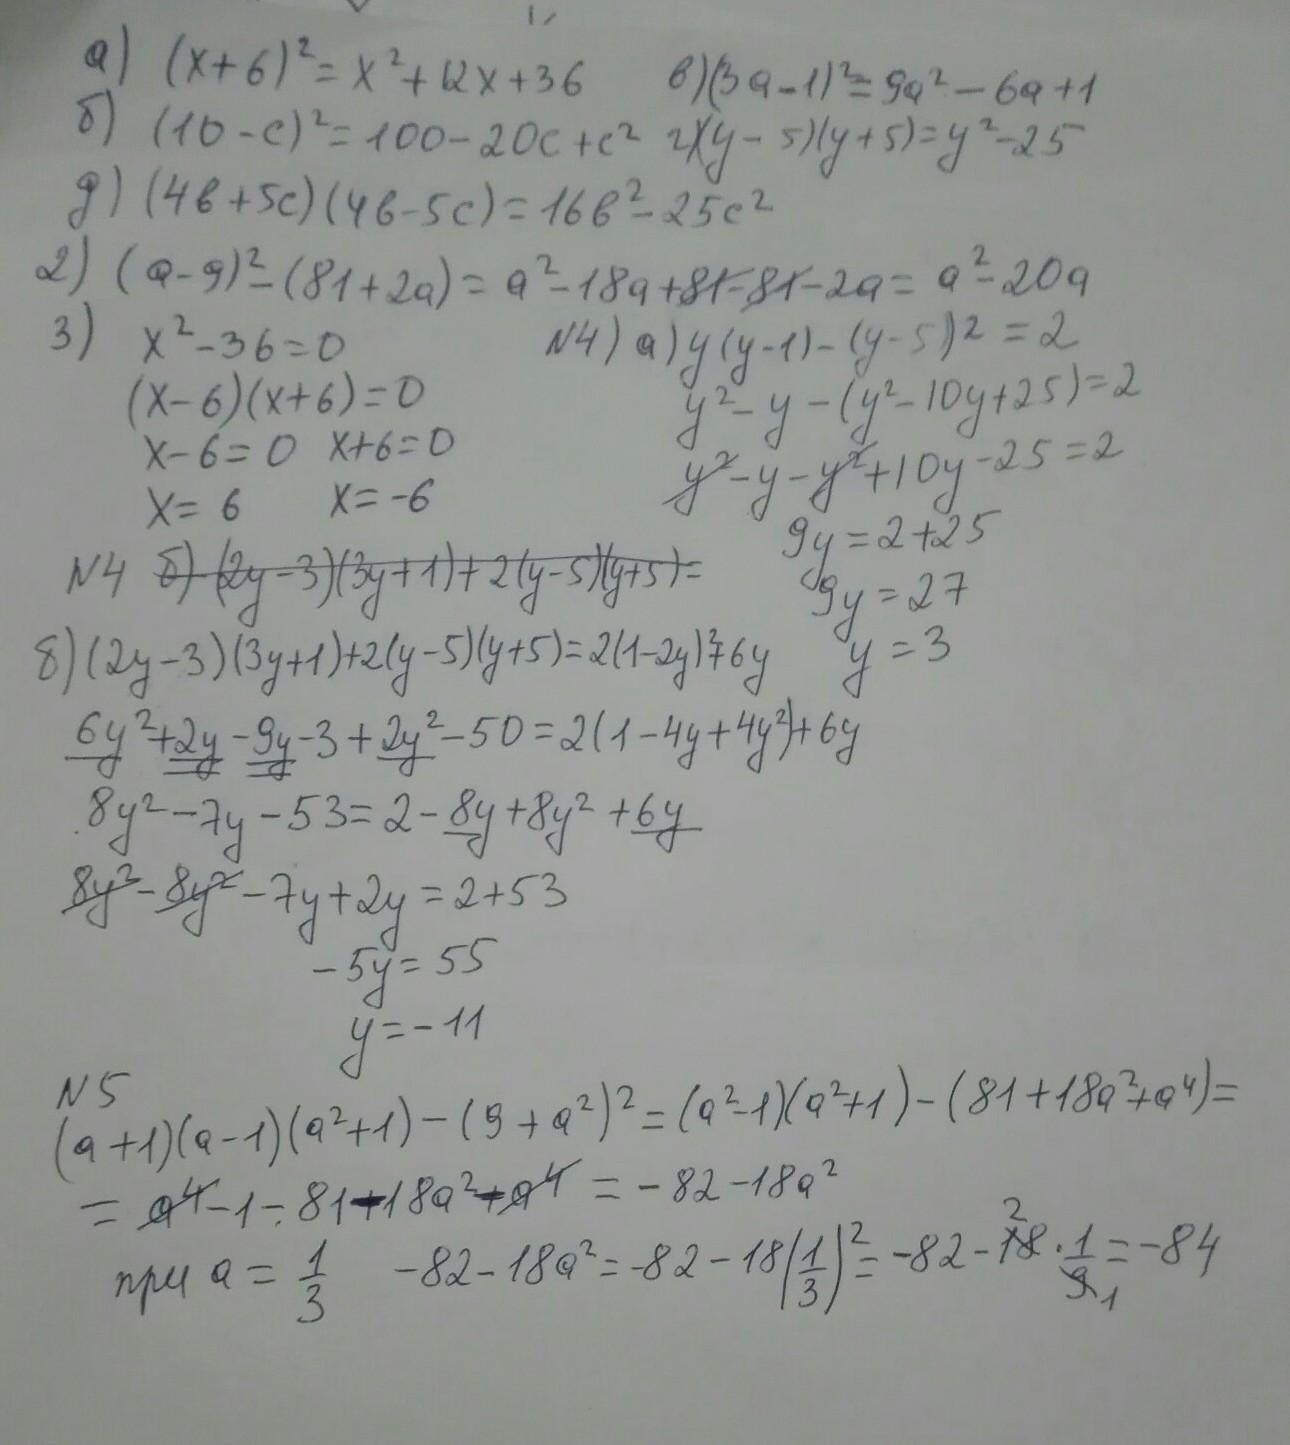 1,
а) (x+6)² = x² + 12x + 36 в) (3a-1)² = 9a² - 6a + 1
б) (10 - c)² = 100 - 20c + c² г) (y - 5)(y + 5) = y² - 25
д) (4в + 5c)(4в - 5c) = 16в² - 25c²
2) (a - 9)² - (81 + 2a) = a² - 18a + 81 - 81 - 2a = a² - 20a
3) x² - 36 = 0
(x - 6)(x + 6) = 0
x - 6 = 0 x + 6 = 0
x = 6 x = -6
N4) а) y(y-1) - (y-5)² = 2
y² - y - (y² - 10y + 25) = 2
y² - y - y² + 10y - 25 = 2
9y = 2 + 25
9y = 27
y = 3
N4 б) (2y - 3)(3y + 1) + 2(y - 5)(y + 5) =
б) (2y - 3)(3y + 1) + 2(y - 5)(y + 5) = 2(1 - 2y)² + 6y
6y² + 2y - 9y - 3 + 2y² - 50 = 2(1 - 4y + 4y²) + 6y
8y² - 7y - 53 = 2 - 8y + 8y² + 6y
8y² - 8y² - 7y + 2y = 2 + 53
- 5y = 55
y = - 11
N5
(a + 1)(a - 1)(a² + 1) - (9 + a²)² = (a² - 1)(a² + 1) - (81 + 18a² + a⁴) =
= a⁴ - 1 - 81 - 18a² - a⁴ = - 82 - 18a²
при a = 1/3 - 82 - 18a² = -82 - 18(1/3)² = -82 - 18 2 · 1/9 1 = -84